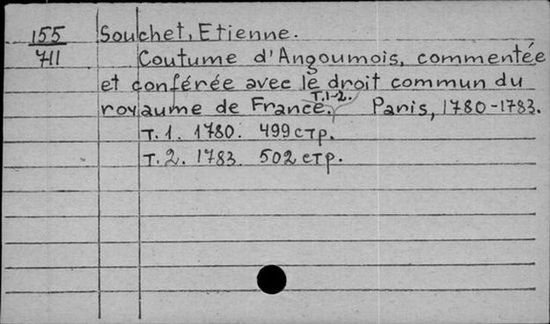 155 Souchet, Etienne.
711 Coutume d'Angoumois, commentée
et conférée avec le droit commun du
royaume de France. T.1-2. Paris, 1780-1783.
T. 1. 1780. 499 стр.
T. 2. 1783. 502 стр.